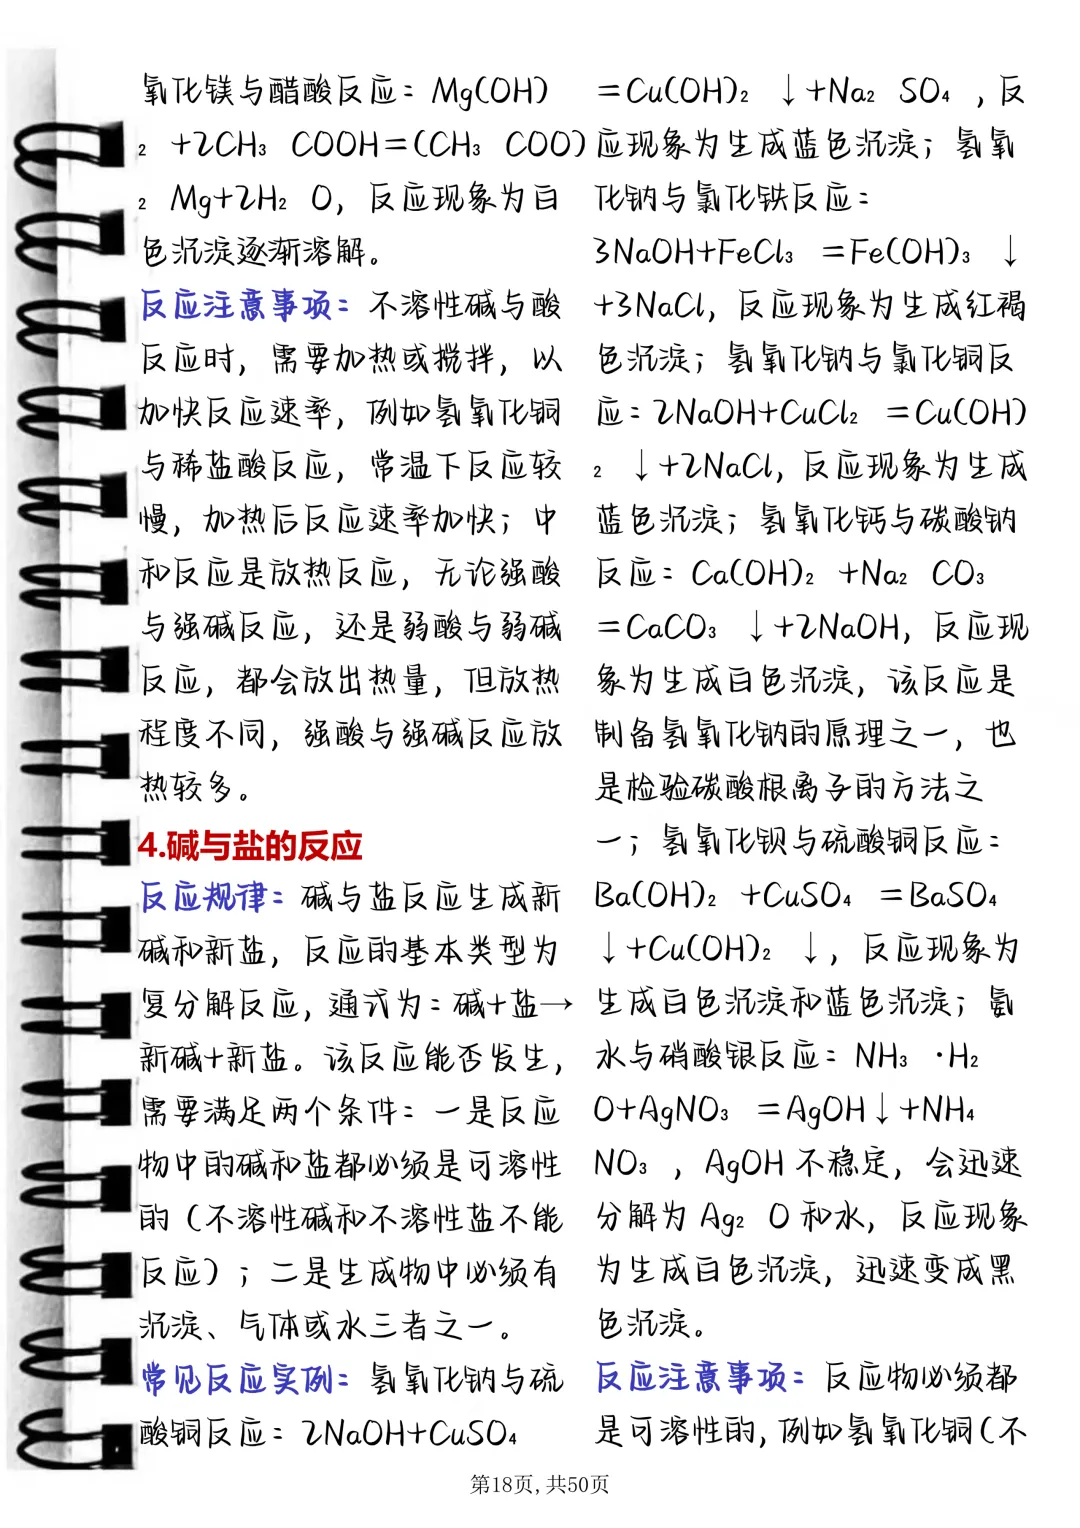 氧化镁与醋酸反应：Mg(OH)
₂ +2CH₃ COOH=(CH₃ COO)
₂ Mg+2H₂ O，反应现象为白
色沉淀逐渐溶解。
反应注意事项：不溶性碱与酸
反应时，需要加热或搅拌，以
加快反应速率，例如氢氧化铜
与稀盐酸反应，常温下反应较
慢，加热后反应速率加快；中
和反应是放热反应，无论强酸
与强碱反应，还是弱酸与弱碱
反应，都会放出热量，但放热
程度不同，强酸与强碱反应放
热较多。
4.碱与盐的反应
反应规律：碱与盐反应生成新
碱和新盐，反应的基本类型为
复分解反应，通式为：碱+盐→
新碱+新盐。该反应能否发生，
需要满足两个条件：一是反应
物中的碱和盐都必须是可溶性
的（不溶性碱和不溶性盐不能
反应）；二是生成物中必须有
沉淀、气体或水三者之一。
常见反应实例：氢氧化钠与硫
酸铜反应：2NaOH+CuSO₄
=Cu(OH)₂ ↓+Na₂ SO₄ ，反
应现象为生成蓝色沉淀；氢氧
化钠与氯化铁反应：
3NaOH+FeCl₃ =Fe(OH)₃ ↓
+3NaCl，反应现象为生成红褐
色沉淀；氢氧化钠与氯化铜反
应：2NaOH+CuCl₂ =Cu(OH)
₂ ↓+2NaCl，反应现象为生成
蓝色沉淀；氢氧化钙与碳酸钠
反应：Ca(OH)₂ +Na₂ CO₃
=CaCO₃ ↓+2NaOH，反应现
象为生成白色沉淀，该反应是
制备氢氧化钠的原理之一，也
是检验碳酸根离子的方法之
一；氢氧化钡与硫酸铜反应：
Ba(OH)₂ +CuSO₄ =BaSO₄
↓+Cu(OH)₂ ↓，反应现象为
生成白色沉淀和蓝色沉淀；氨
水与硝酸银反应：NH₃ ·H₂
O+AgNO₃ =AgOH↓+NH₄
NO₃ ，AgOH 不稳定，会迅速
分解为 Ag₂ O 和水，反应现象
为生成白色沉淀，迅速变成黑
色沉淀。
反应注意事项：反应物必须都
是可溶性的，例如氢氧化铜（不
第18页，共50页